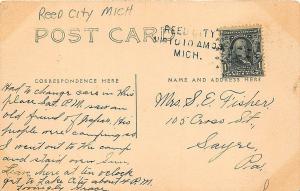 REED CITY MICH
POST CARD
REED CITY
MICH.
CORRESPONDENCE HERE
NAME AND ADDRESS HERE
Had to change cars in this
place Sat P.M. saw an
old friend of Papas. His
people were camping so
I went out to the camp
and staid over Sun.
here at ten o'clock
get to Lake City about 4 P.M.
Lovingly
Mrs. S. E. Fisher,
105 Cross St.
Sayre,
Pa.